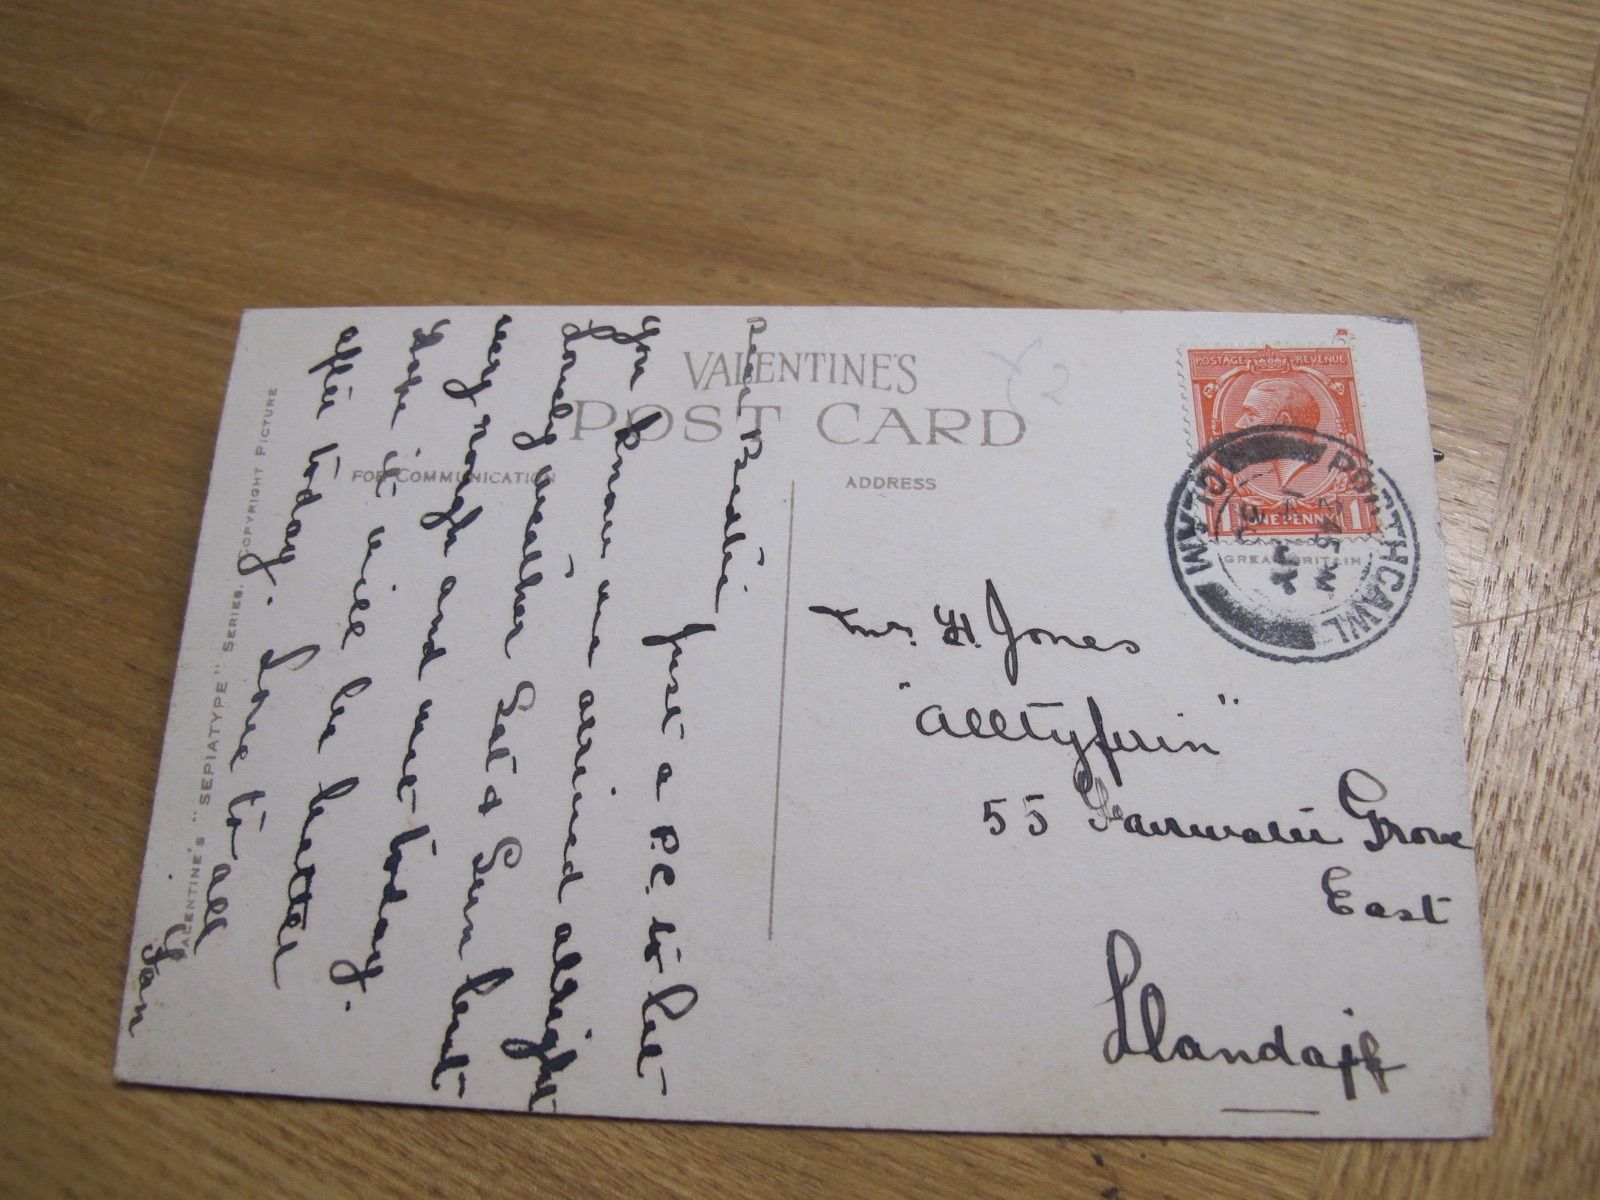 VALENTINE'S
POST CARD
FOR COMMUNICATION
ADDRESS
VALENTINE'S "SEPIATYPE" SERIES. COPYRIGHT PICTURE
POSTAGE REVENUE
1 ONE PENNY 1
GREAT BRITAIN
PORTHCAWL
GLAM
Dear Bertie Just a P.C. to let
you know we arrived alright
Lovely weather Sat & Sun but
very rough and wet today.
Hope it will be better
after today. Love to all
Ian
Mrs. H. Jones
"Alltyferin"
55 Fairwater Grove
East
Llandaff